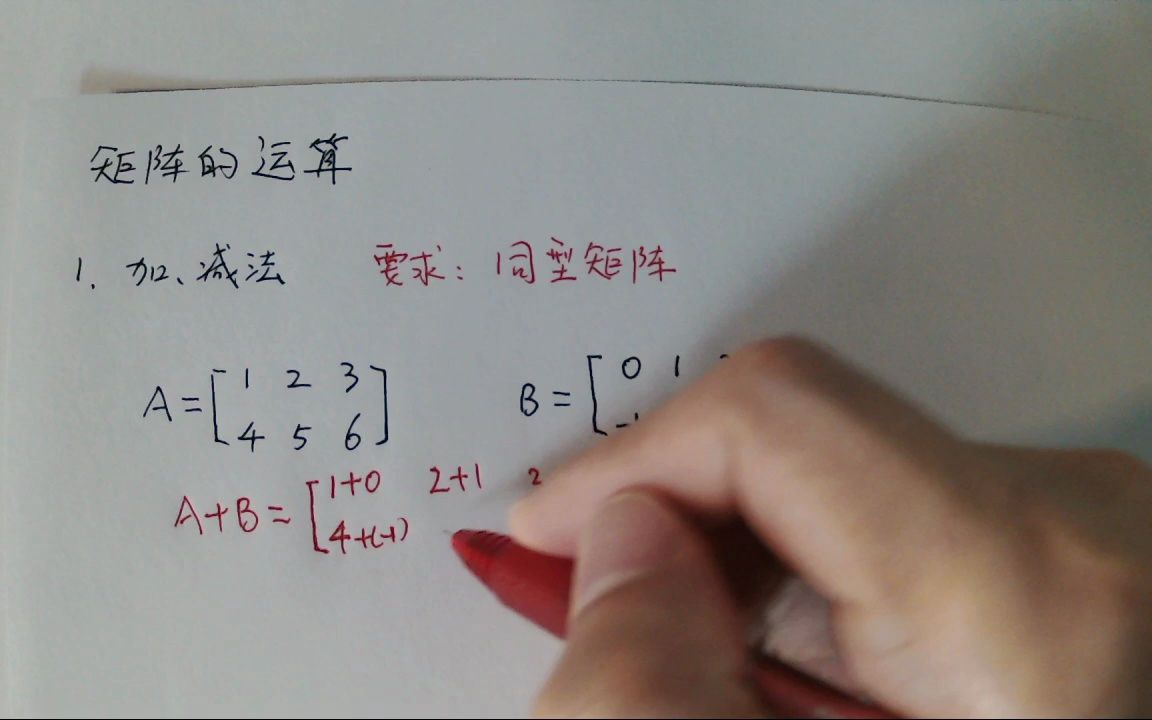 矩阵的运算
1. 加、减法 要求: 同型矩阵
A = [ 1 2 3 B = [ 0 1
4 5 6 ] -1
A+B = [ 1+0 2+1
4+(-1)